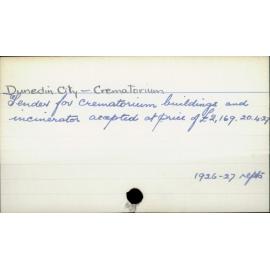 Dunedin City — Crematorium
Tender for Crematorium buildings and
incinerator accepted at price of £2,169.20.437
1926-27 repts